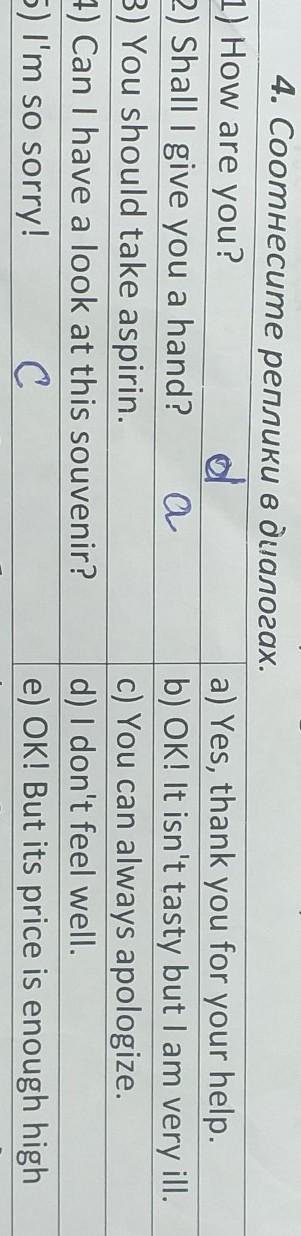 4. Соотнесите реплики в диалогах.
1) How are you? d a) Yes, thank you for your help.
2) Shall I give you a hand? a b) OK! It isn't tasty but I am very ill.
3) You should take aspirin. c) You can always apologize.
4) Can I have a look at this souvenir? d) I don't feel well.
5) I'm so sorry! c e) OK! But its price is enough high